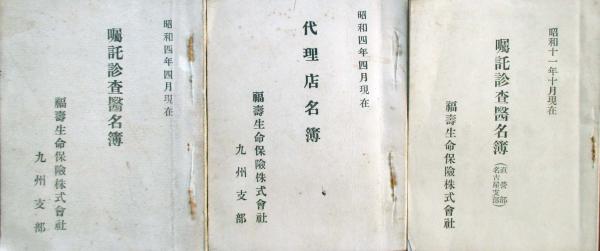 昭和四年四月現在
囑託診査醫名簿
福壽生命保險株式會社
九州支部
昭和四年四月現在
代理店名簿
福壽生命保險株式會社
九州支部
昭和十一年十月現在
囑託診査醫名簿(直營部 名古屋支部)
福壽生命保險株式會社